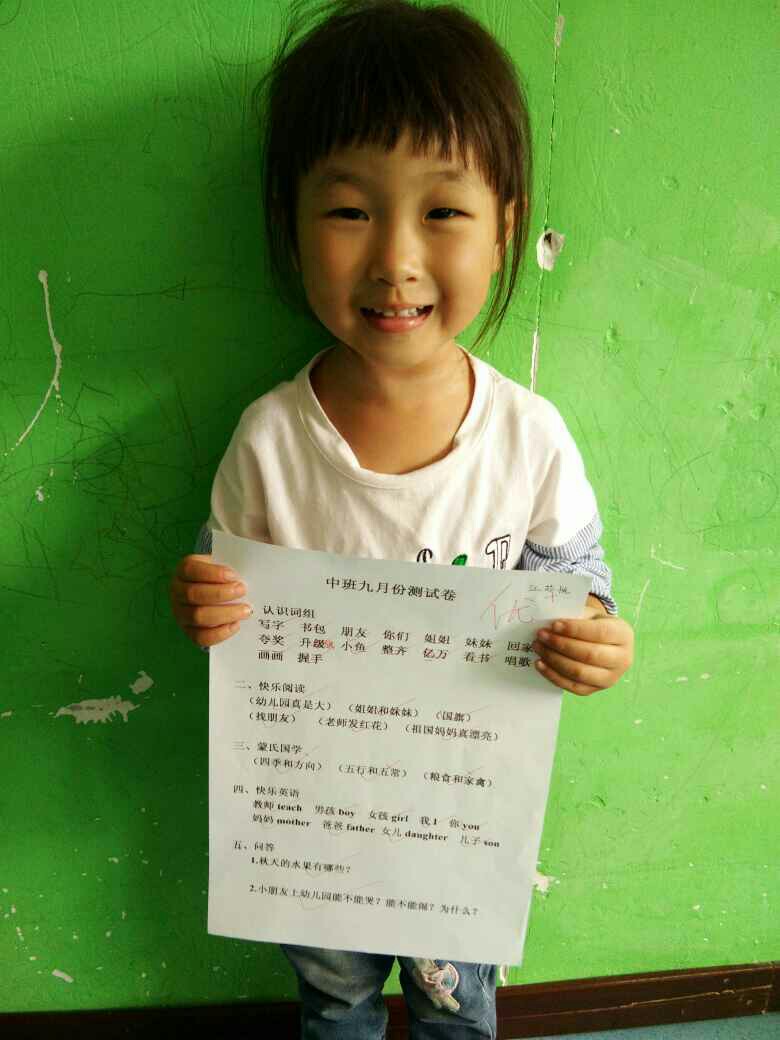 中班九月份测试卷
优
、认识词组
写字 书包 朋友 你们 姐姐 妹妹 回家
夸奖 升级 小鱼 整齐 亿万 看书 唱歌
画画 握手
二、快乐阅读
(幼儿园真是大) (姐姐和妹妹) (国旗)
(找朋友) (老师发红花) (祖国妈妈真漂亮)
三、蒙氏国学
(四季和方向) (五行和五常) (粮食和家禽)
四、快乐英语
教师 teach 男孩 boy 女孩 girl 我 I 你 you
妈妈 mother 爸爸 father 女儿 daughter 儿子 son
五、问答
1.秋天的水果有哪些?
2.小朋友上幼儿园能不能哭?能不能闹?为什么?